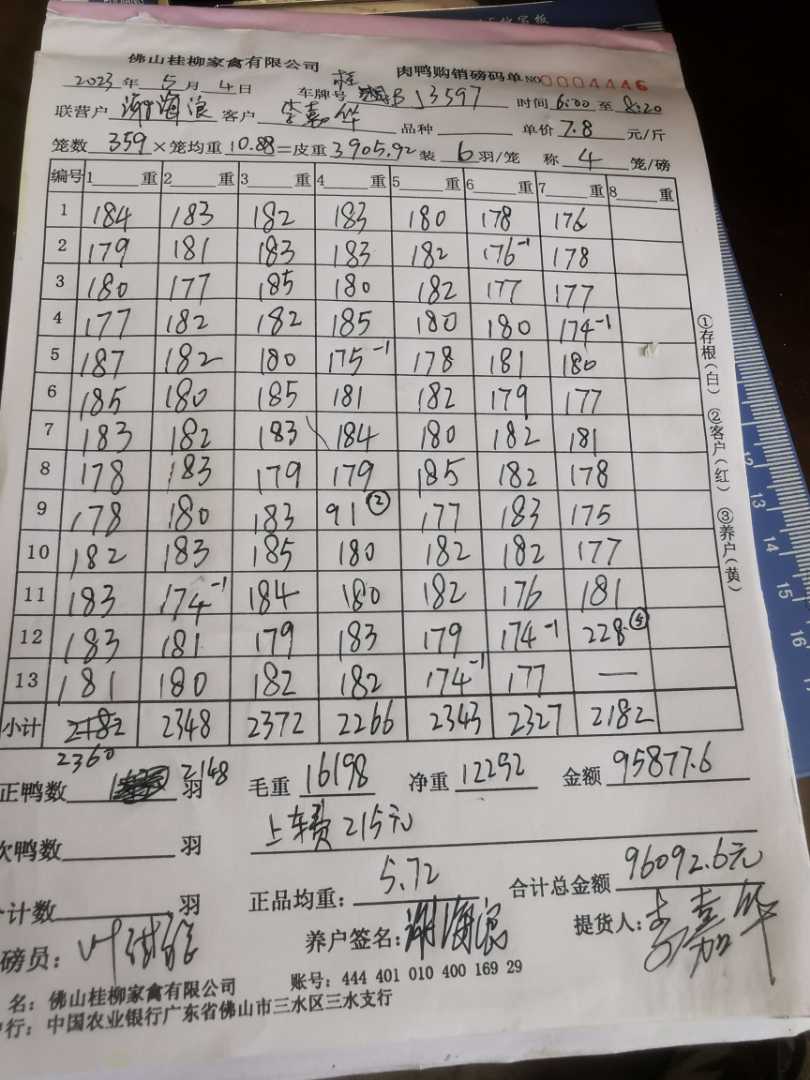 佛山桂柳家禽有限公司 肉鸭购销磅码单 NO 0004446
2023年5月4日 车牌号 桂 B J3597 时间 6:00 至 8:20
联营户 谢海浪 客户 李嘉华 品种 单价 7.8 元/斤
笼数 359 ×笼均重 10.88 =皮重 3905.92 装 6 羽/笼 称 4 笼/磅
编号 1 重 2 重 3 重 4 重 5 重 6 重 7 重 8 重
1 184 183 182 183 180 178 176
2 179 181 183 183 182 176-1 178
3 180 177 185 180 182 177 177
4 177 182 182 185 180 180 174-1
5 187 182 180 175-1 178 181 180
6 185 180 185 181 182 179 177
7 183 182 183 184 180 182 181
8 178 183 179 179 185 182 178
9 178 180 183 91② 177 183 175
10 182 183 185 180 182 182 177
11 183 174-1 184 180 182 176 181
12 183 181 179 183 179 174-1 228⑤
13 181 180 182 182 174-1 177 —
小计 2182 2348 2372 2266 2343 2327 2182
2360
正鸭数 2148 羽 毛重 16198 净重 12292 金额 95877.6
次鸭数 羽 上车费 215元
计数 羽 正品均重: 5.72 合计总金额 96092.6元
磅员: 养户签名: 谢海浪 提货人: 李嘉华
名: 佛山桂柳家禽有限公司 账号: 444 401 010 400 169 29
行: 中国农业银行广东省佛山市三水区三水支行
①存根(白) ②客户(红) ③养户(黄)
12
13
14
15
16